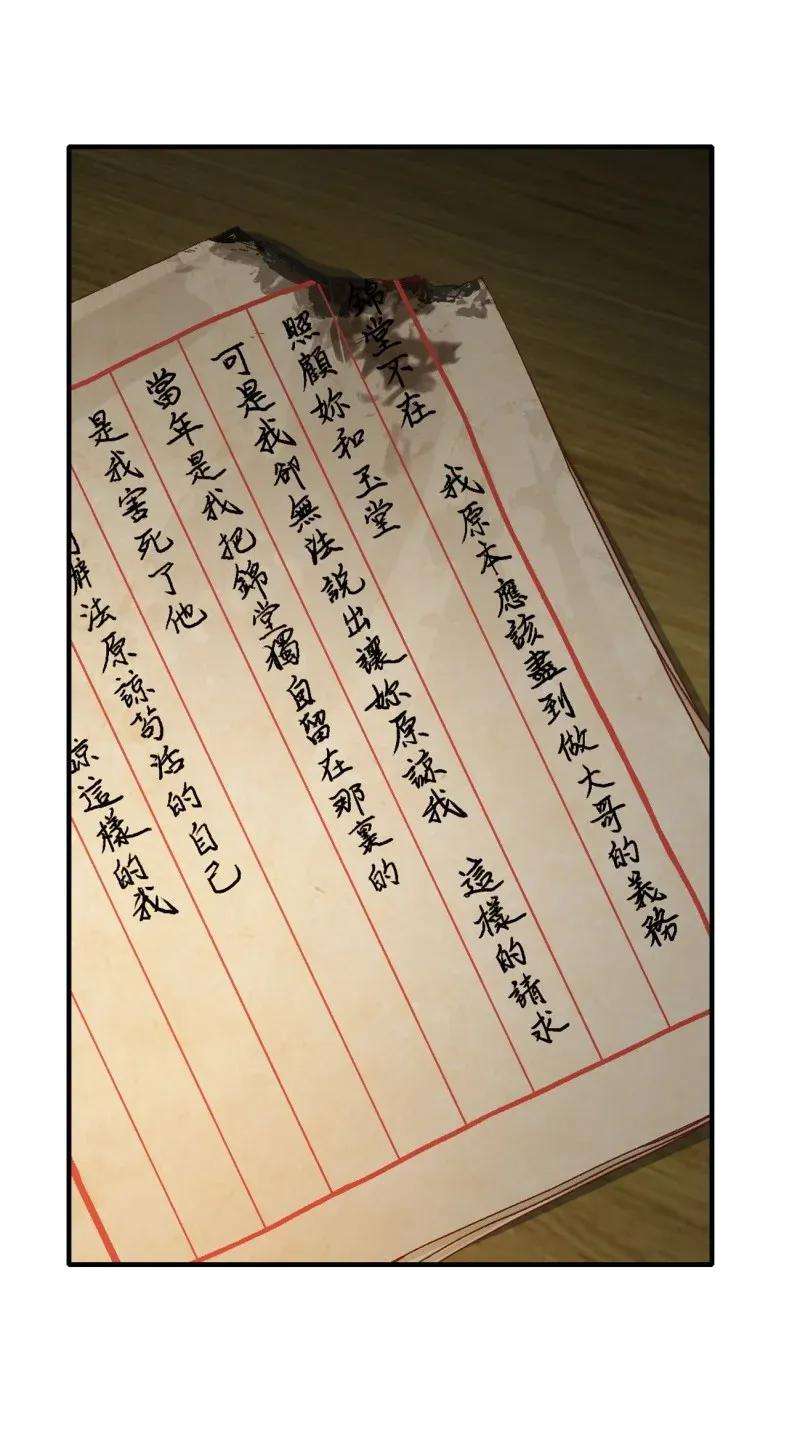 錦堂不在 我原本應該盡到做大哥的義務
照顧妳和玉堂
可是我卻無法說出讓妳原諒我 這樣的請求
當年是我把錦堂獨自留在那裏的
是我害死了他
法原諒苟活的自己
諒這樣的我